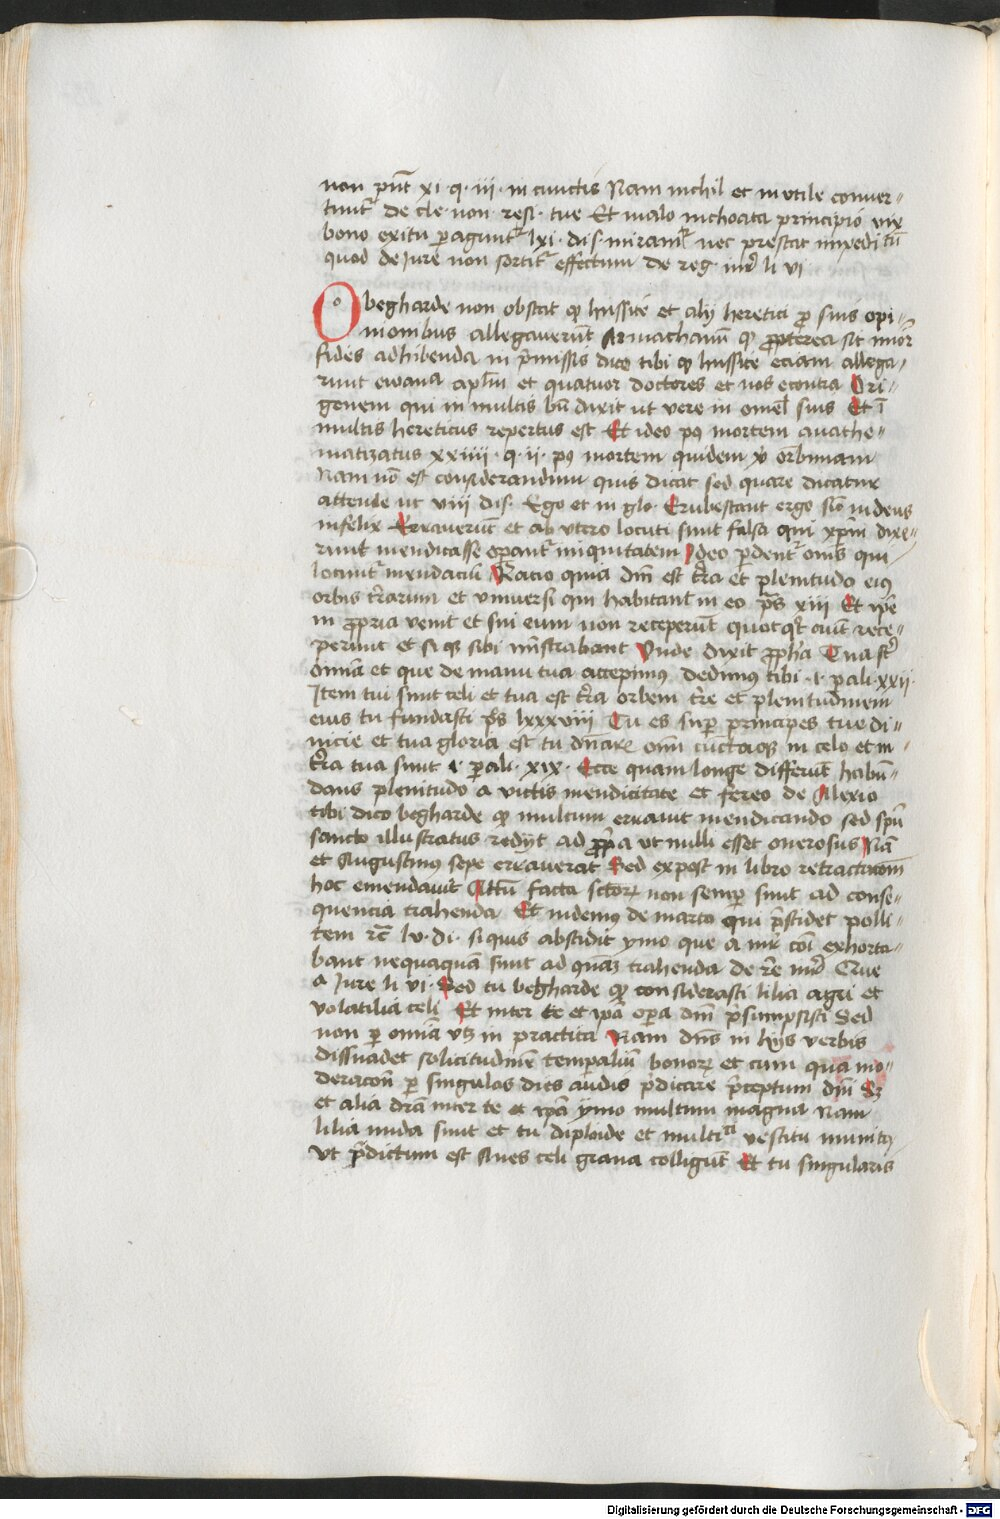 non pnt xi · q · iii · in cunctis Nam nichil et inutile conver-
tunt᷑ De cle · non · resi · tue Et malo inchoata principio vix
bono exitu pagunt᷑ lxi · dis · miram᷑ nec prestat impedi tū
quod de Jure non sortit᷑ effectum De reg · iur̄ li vi
O begharde non obstat qͦ hussite et alij heretici ꝓ suis opi-
nionibus allegaverūt Armachanū qͦ ꝓpterea sit mīor
fides adhibenda in p̄missis dico tibi qͦ hussite eciam allega-
runt ewāna aplīm et quatuor doctores et nos econtra Ori-
genem qui in multis bn̄ dixit ut vere in omel̄ suis Et ī
multis hereticus repertus est Et ideo pꝯ mortem anathe-
matizatus xxiiii · q · ii · pꝯ mortem quidem
Nam nō est considerandum quis dicat sed quare dicatur
attende ut viiii dis · Ego et in glo · Erubescant ergo
infelix Erraverūt et ab utero locuti sunt falsa qui xp̄m dixe-
runt mendicasse opant᷑ iniquitatem Ideo pdent᷑ omīs qui
locunt᷑ mendaciū Racio quia dn̄i est tr̄a et plenitudo eiꝯ
orbis tr̄arum et universi qui habitant in eo p̄s xiii Et ip̄e
in ꝓpria venit et sui eum non receperūt quotqͦt aut̄ rece-
perunt et si qͥ sibi mīstrabant Unde dixit ꝓph̄a Tua st̄
omīa et que de manu tua accepimꝯ dedimꝯ tibi · i · pali · xxii ·
Item tui sunt celi et tua est tr̄a orbem tr̄e et plenitudinem
eius tu fundasti p̄s lxxxviii Tu es sup principes tue di-
vicie et tua gloria est tu dn̄aris om̄i cūctaqꝫ in celo et in
tr̄a tua sunt i pali · xix · Ecce quam longe differūt habū-
dans plenitudo a victis mendicitate et fereo de Alexio
tibi dico begharde qͦ multum erravit mendicando sed spū
sancto illustratus redijt ad ꝓp̄a ut nulli esset onerosus Nā
et Augustinus sepe erraverat Sed expost in libro retractacōm
hoc emendavit Attn̄ facta sctorꝝ non semp sunt ad conse-
quencia trahenda Et videmꝯ de marco qui p̄scidet polli-
cem rc̄ lv · di · si quis abscidit ymo que a iur̄ cōi exhorta-
bant nequaquā sunt ad quāz trahenda de re iur̄ Que
a Jure li vi · Sed tu begharde qͦ considerasti lilia agri et
volatilia celi Et inter te et ip̄a opa dn̄i p̄sumpsisti Sed
non p omīa vtꝫ in practica Nam dn̄s in hijs verbis
dissuadet solicitudinē tempaliū bonorꝝ et cum qua mo-
deracōn̄ p singulos dies audis p̄dicare p̄ceptum dn̄i Sꝫ
et alia drā inter te et ip̄a ymo multum magna Nam
lilia nuda sunt et tu diploide et multi ci vestitu munitꝯ
ut p̄dictum est Aves celi grana colligūt Et tu singularis
Digitalisierung gefördert durch die Deutsche Forschungsgemeinschaft - DFG